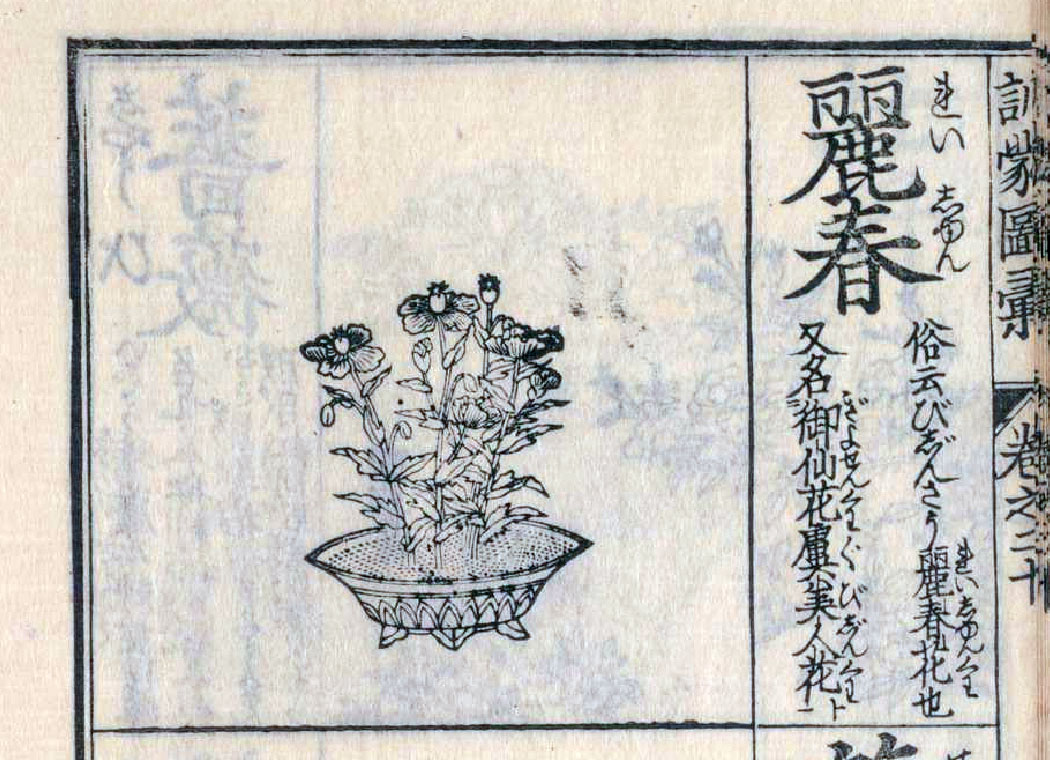 訓蒙圖彙 巻之二十
れい しゆん
麗春
俗云びじんさう麗春花也
れいしゆんくわ
又名御仙花虞美人花ト
ぎよせんくわ ぐびじんくわ